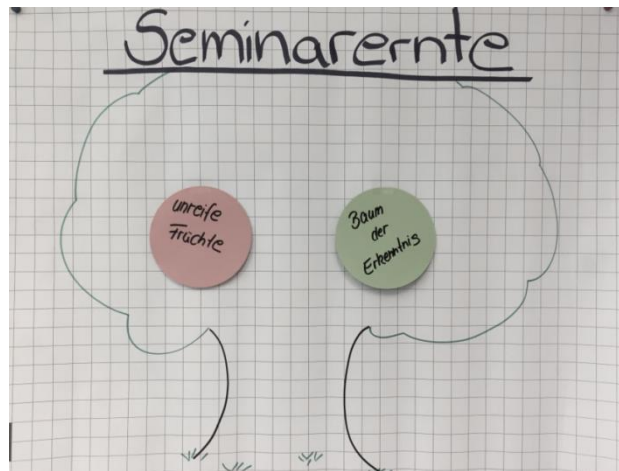 Seminarernte
unreife
Früchte
Baum
der
Erkenntnis